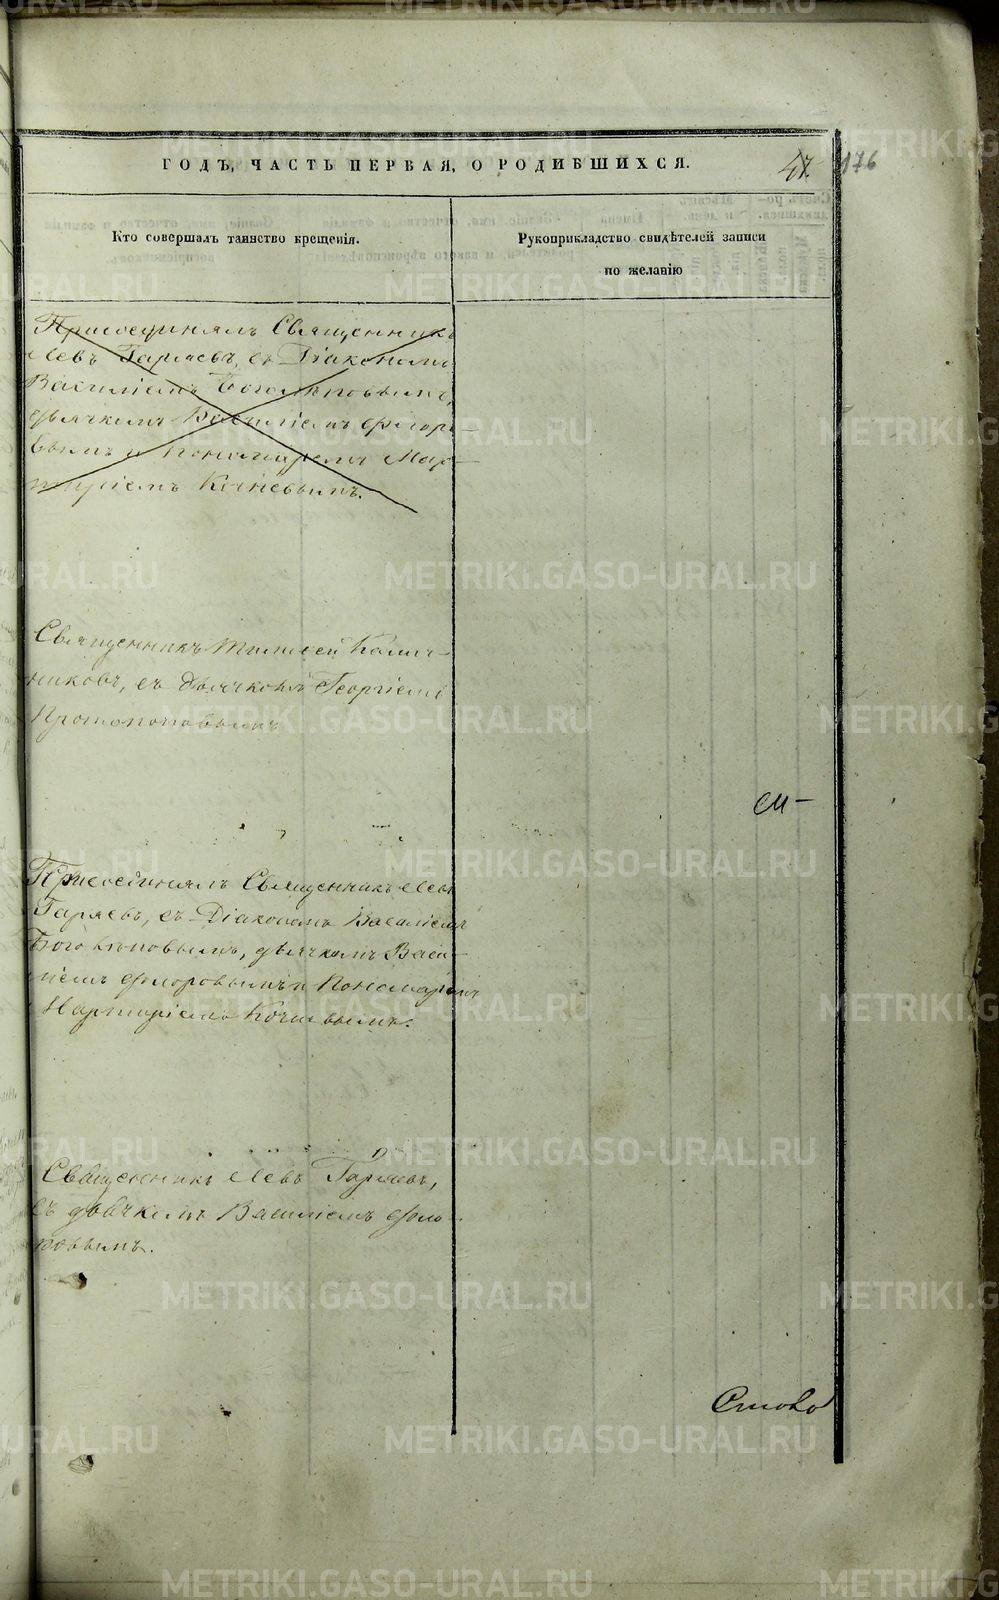 ГОДЪ, ЧАСТЬ ПЕРВАЯ, О РОДИВШИХСЯ.
47. 176
Кто совершалъ таинство крещенія.
Рукоприкладство свидѣтелей записи
по желанію
Присоединялъ Священникъ
Левъ Гаряевъ, съ Діакономъ
Василіемъ Боголѣповымъ,
дьячкомъ Василіемъ Флоро-
вымъ и пономаремъ Мар-
тиріемъ Кочневымъ.
Священникъ Тимофей Калаш-
никовъ, съ дьячкомъ Георгіемъ
Протопоповымъ
Присоединялъ Священникъ Левъ
Гаряевъ, съ Діакономъ Василіемъ
Боголѣповымъ, дьячкомъ Васи-
ліемъ Флоровымъ и Пономаремъ
Мартиріемъ Кочневымъ.
Священникъ Левъ Гаряевъ,
съ дьячкомъ Василіемъ Фло-
ровымъ.
METRIKI.GASO-URAL.RU